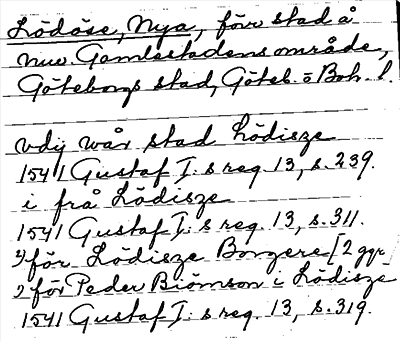 Lödöse, Nya, förr stad å
nuv. Gamlestadens område,
Göteborgs stad, Göteb. o Boh. l.
vdij wår stad Lödisze
1541 Gustaf I:s reg. 13, s. 239.
i frå Lödisze
1541 Gustaf I:s reg. 13, s. 311.
för Lödisze Borgere [2 ggr]
för Peder Biörnson i Lödisze
1541 Gustaf I:s reg. 13, s. 319.